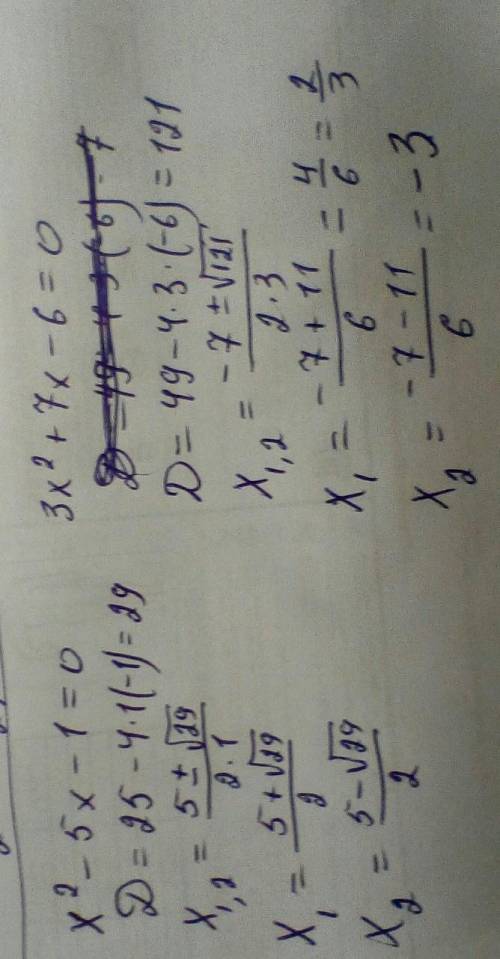 x² - 5x - 1 = 0
D = 25 - 4·1(-1) = 29
x₁,₂ = (5 ± √29)/(2·1)
x₁ = (5 + √29)/2
x₂ = (5 - √29)/2
3x² + 7x - 6 = 0
D = 49 - 4·3·(-6) = 121
x₁,₂ = (-7 ± √121)/(2·3)
x₁ = (-7 + 11)/6 = 4/6 = 2/3
x₂ = (-7 - 11)/6 = -3